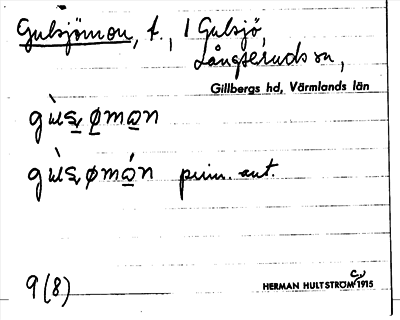 Gulsjömon, t., 1 Gulsjö,
Långseruds sn,
Gillbergs hd, Värmlands län
prim. ant.
9(8)
HERMAN HULTSTRÖM 1915